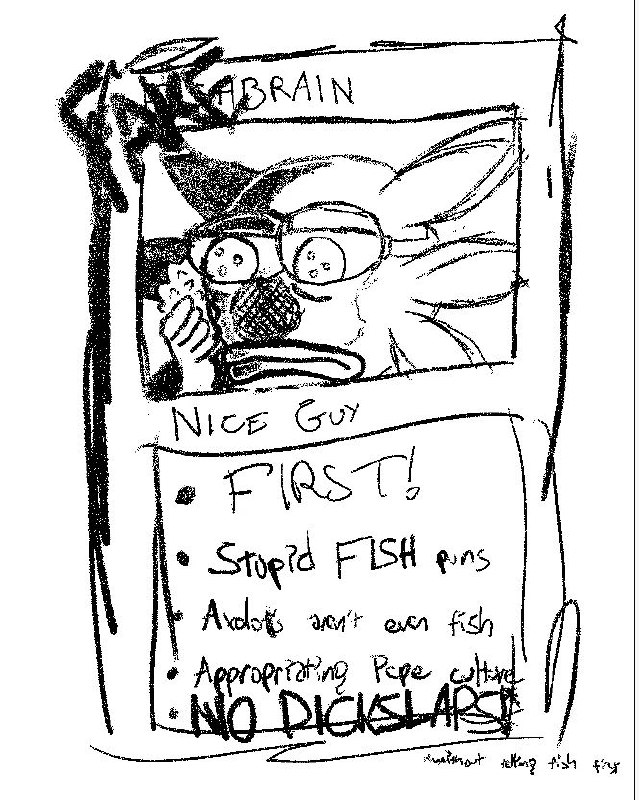 ABRAIN
NICE GUY
• FIRST!
• Stupid FISH puns
• Axolotls aren't even fish
• Appropriating Pepe culture
• NO DICKSLAPS!
without telling fish